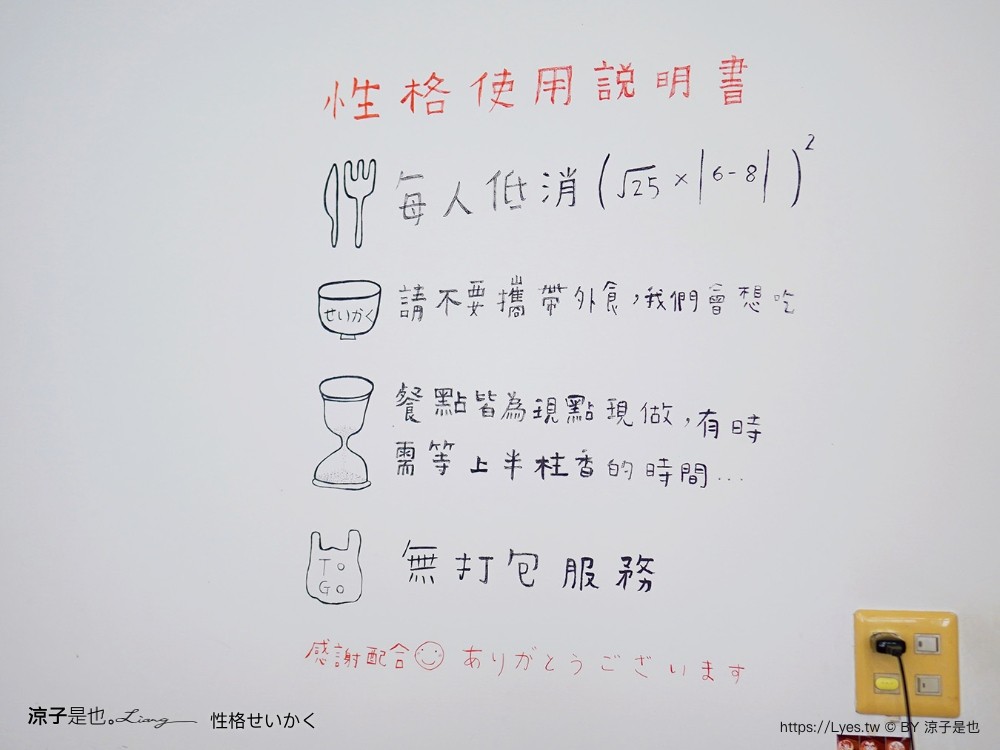 性格使用説明書
每人低消(√25×|6-8|)²
せいかく
請不要攜帶外食,我們會想吃
餐點皆為現點現做,有時
需等上半柱香的時間...
TO
GO
無打包服務
感謝配合 ありがとうございます
涼子是也。Liang 性格せいかく
https://Lyes.tw © BY 涼子是也